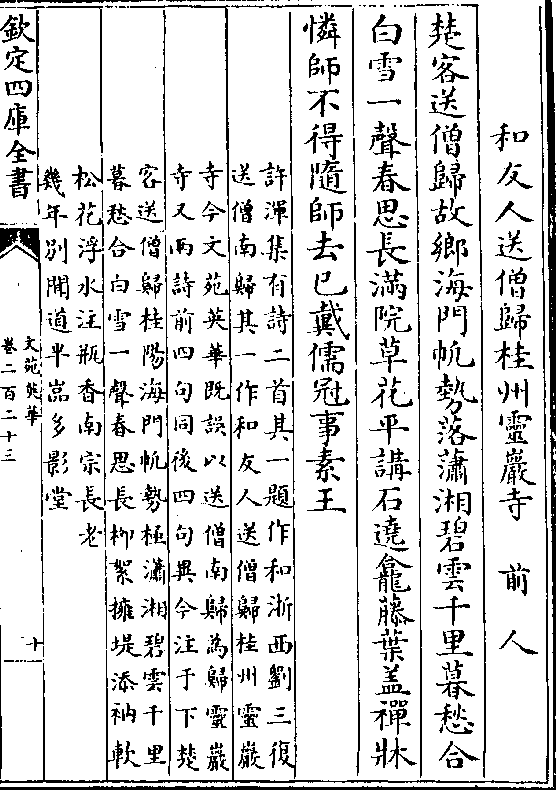 和友人送僧歸桂州靈巖寺　前人
楚客送僧歸故鄉海門帆勢落瀟湘碧雲千里暮愁合
白雪一聲春思長滿院草花平講石遶龕藤葉盖禪牀
憐師不得隨師去已戴儒冠事素王
許渾集有詩二首其一題作和浙西劉三復
送僧南歸其一作和友人送僧歸桂州靈巖
寺今文苑英華既誤以送僧南歸為歸靈巖
寺又兩詩前四句同後四句異今注于下楚
客送僧歸桂陽海門帆勢極瀟湘碧雲千里
暮愁合白雪一聲春思長柳絮擁堤添衲軟
松花浮水注瓶香南宗長老
幾年別聞道半嵓多影堂
欽定四庫全書
文苑英華
卷二百二十三
十